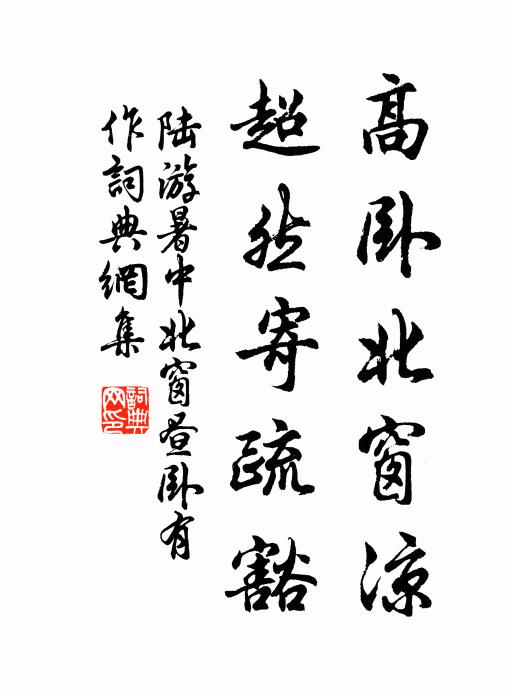 高卧北窗涼
超然寄疏豁
陆游暑中北窗昼卧有
作詞典網集
詞典
网印